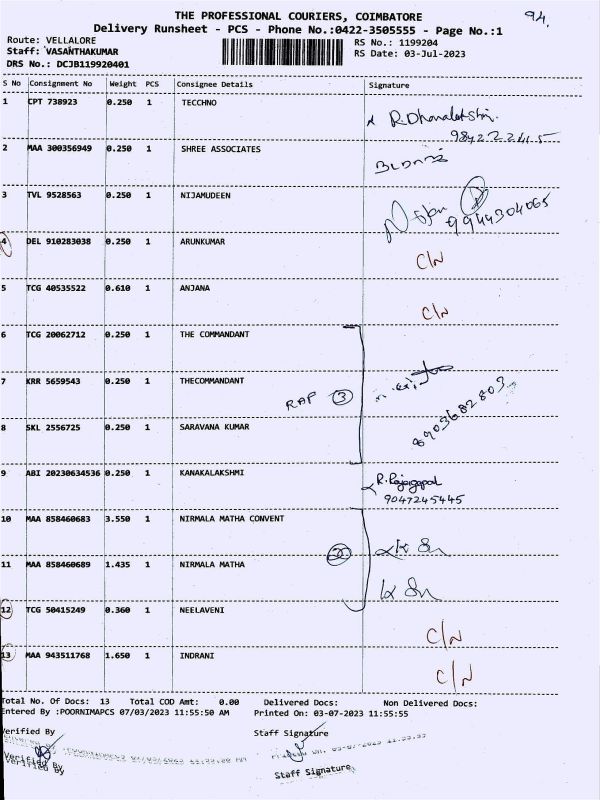 THE PROFESSIONAL COURIERS, COIMBATORE
94.
Delivery Runsheet - PCS - Phone No.:0422-3505555 - Page No.:1
Route: VELLALORE
RS No.: 1199204
Staff: VASANTHAKUMAR
RS Date: 03-Jul-2023
DRS No.: DCJB119920401
S No Consignment No Weight PCS Consignee Details Signature
1 CPT 738923 0.250 1 TECCHNO
R.Dhanalakshmi
2 MAA 300356949 0.250 1 SHREE ASSOCIATES
3 TVL 9528563 0.250 1 NIJAMUDEEN
9944304065
4 DEL 910283038 0.250 1 ARUNKUMAR
C/N
5 TCG 40535522 0.610 1 ANJANA
C/N
6 TCG 20062712 0.250 1 THE COMMANDANT
7 KRR 5659543 0.250 1 THECOMMANDANT
RAP 3
8903682803
8 SKL 2556725 0.250 1 SARAVANA KUMAR
9 ABI 20230634536 0.250 1 KANAKALAKSHMI
R.Rajagopal
9047245445
10 MAA 858460683 3.550 1 NIRMALA MATHA CONVENT
2
11 MAA 858460689 1.435 1 NIRMALA MATHA
12 TCG 50415249 0.360 1 NEELAVENI
C/N
13 MAA 943511768 1.650 1 INDRANI
C/N
Total No. Of Docs: 13 Total COD Amt: 0.00 Delivered Docs: Non Delivered Docs:
Entered By :POORNIMAPCS 07/03/2023 11:55:50 AM Printed On: 03-07-2023 11:55:55
Verified By Staff Signature
Verified By
Verified By
Staff Signature